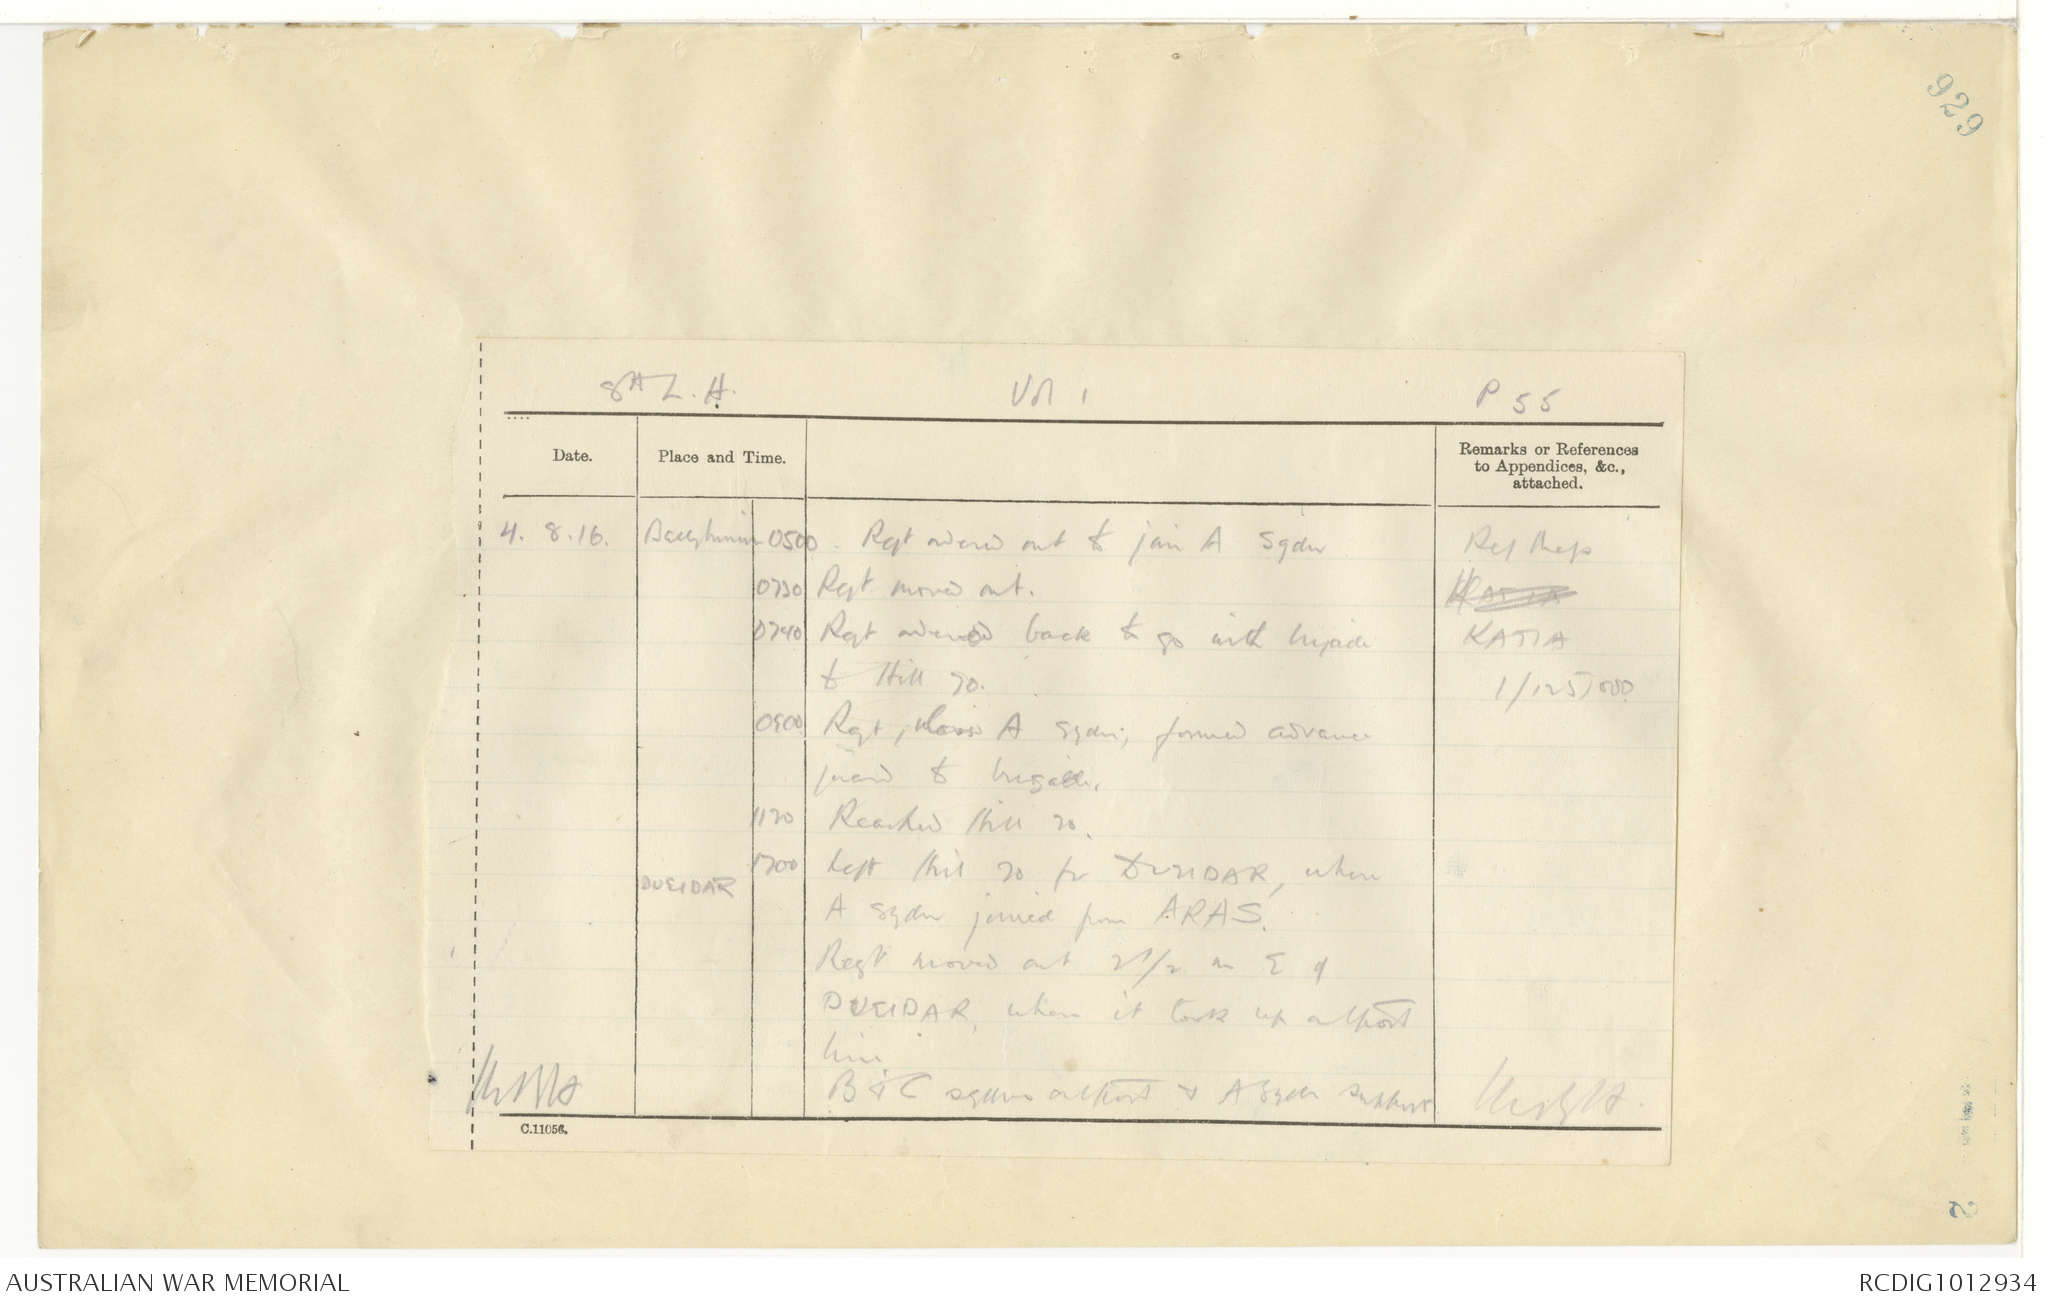 929
8th L.H. Vol 1 P 55
Date. Place and Time. Remarks or References to Appendices, &c., attached.
4.8.16. Ballybunion 0500. Regt ordered out to join A Sqdn Ref Map
0730 Regt moved out. KATIA
0740 Regt ordered back to go with brigade KATIA
to Hill 70. 1/125,000
0900 Regt, A Sqdn, formed advance
guard to brigade.
1120 Reached Hill 70.
DUEIDAR 1700 Left Hill 70 for DUEIDAR, where
A Sqdn joined from ARAS.
Regt moved out 2 1/2 m E of
DUEIDAR, where it took up outpost
line
B & C sqdns outpost & A Sqdn support
C.11056.
2
AUSTRALIAN WAR MEMORIAL RCDIG1012934